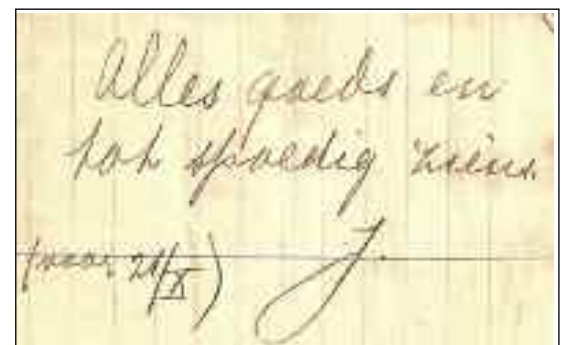 Alles goeds en
tot spoedig ziens.
J.